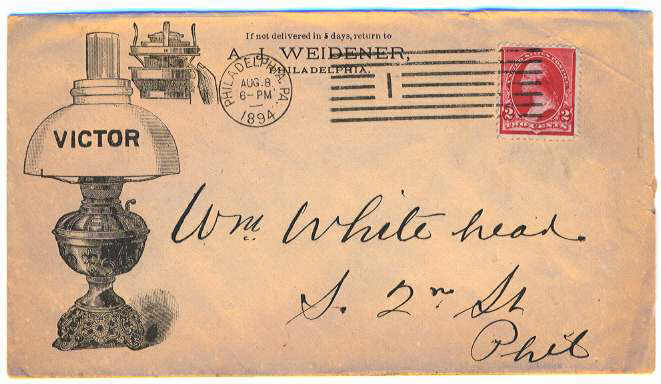 If not delivered in 5 days, return to
A. J. WEIDENER,
PHILADELPHIA.
PHILADELPHIA, PA.
AUG. 8
6-PM
1894
1
2 2
VICTOR
Wm. White head.
S. 2nd St
Phil